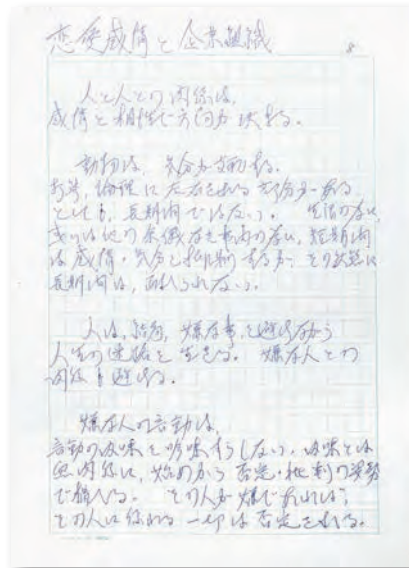 恋愛感情と企業組織
8
人と人との関係は、
感情と相性で方向が決まる。
動物は、気分が支配する。
思考、倫理に左右される部分があれ
としても、長期間ではない。 生活の為、
或いは他の余儀なき事由の為、短期間
は感情・気分と抑制するが、その状態に
長期間は、耐えられない。
人は、結局、嫌な事を避けながら
人生の進路を生きる。 嫌な人との
関係も避ける。
嫌な人の言動は、
言動の意味を吟味すらしない。意味とは
無関係に、始めから否定・批判の姿勢
で構える。 その人が嫌であれば、
その人に係わる一切は否定される。